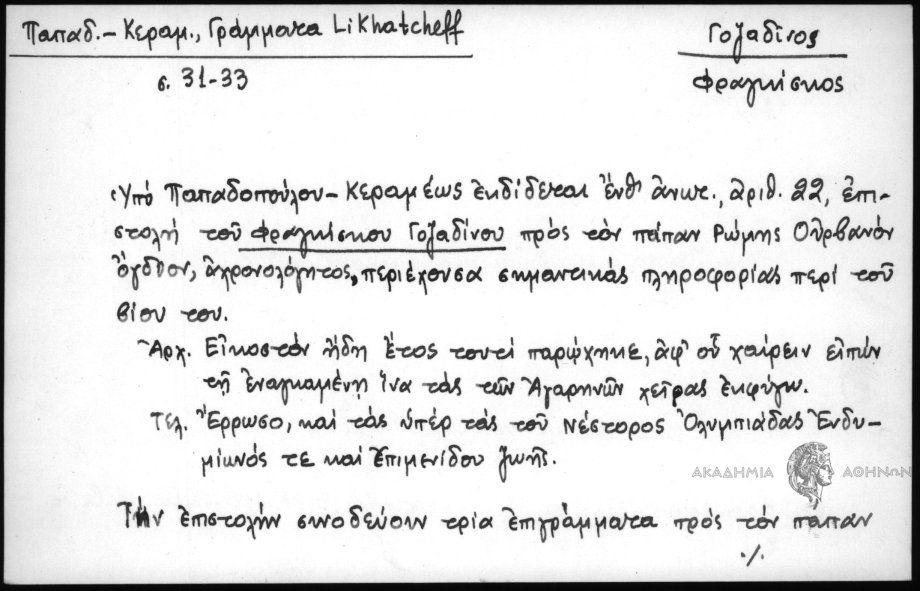 Παπαδ.-Κεραμ., Γράμματα Likhatcheff
σ. 31-33
Γοζαδίνος
Φραγκίσκος
Ὑπό Παπαδοπούλου-Κεραμέως ἐκδίδεται ἔνθ' ἀνωτ., ἀριθ. 22, ἐπι-
στολή τοῦ Φραγκίσκου Γοζαδίνου πρός τόν πάπαν Ρώμης Οὐρβανόν
ὄγδοον, ἀχρονολόγητος, περιέχουσα σημαντικάς πληροφορίας περί τοῦ
βίου του.
Ἀρχ. Εἰκοστόν ἤδη ἔτος τουτί παρῴχηκε, ἀφ' οὗ χαίρειν εἰπών
τῇ ἐναγκαμένῃ ἵνα τάς τῶν Ἀγαρηνῶν χεῖρας ἐκφύγω.
Τελ. Ἔρρωσο, καί τάς ὑπέρ τάς τοῦ Νέστορος Ὀλυμπιάδας Ἐνδυ-
μίωνός τε καί Ἐπιμενίδου ζωῆς.
ΑΚΑΔΗΜΙΑ ΑΘΗΝΩΝ
Τήν ἐπιστολήν συνοδεύουν τρία ἐπιγράμματα πρός τόν πάπαν
./.